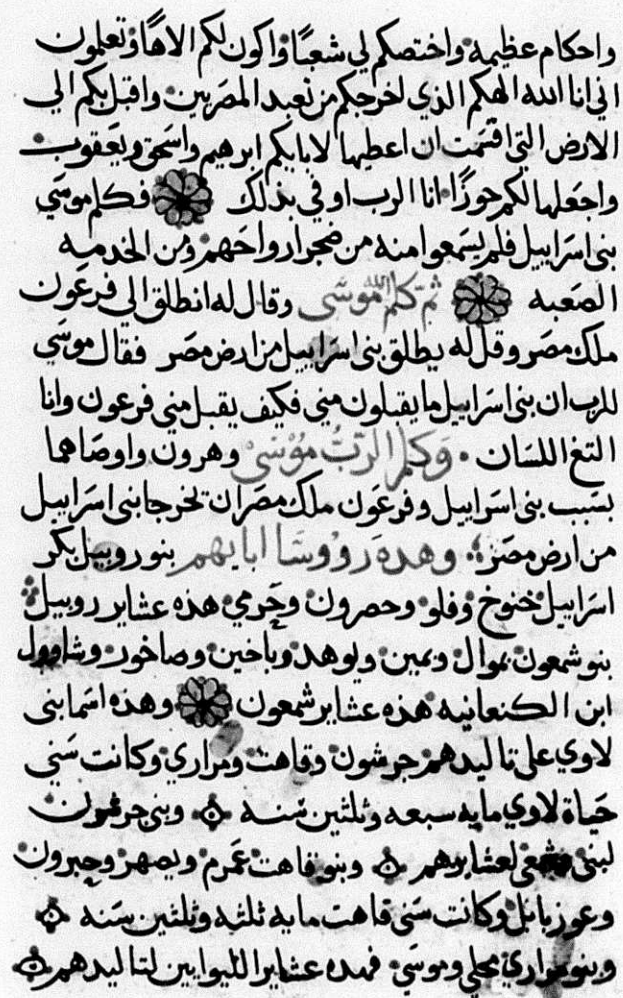 واحكام عظيمة واختصكم لي شعبًا واكون لكم الاهًا وتعلمون
اني انا الله الهكم الذي اخرجكم من تعبد المصريين واقبل بكم الي
الارض التي اقسمت ان اعطيها لابايكم ابرهيم واسحق ويعقوب
واجعلها لكم حوزًا انا الرب اوفي بذلك فكلم موسي
بني اسراييل فلم يسمعوا منه من ضجر ارواحهم ومن الخدمه
الصعبه ثم كلم الله موسي وقال له انطلق الي فرعون
ملك مصر وقل له يطلق بني اسراييل من ارض مصر فقال موسي
للرب ان بني اسراييل ما يقبلون مني فكيف يقبل مني فرعون وانا
التغ اللسان وكلم الرب موسي وهرون واوصاهما
بسبب بني اسراييل وفرعون ملك مصر ان تخرجا بني اسراييل
من ارض مصر وهده رووسا ابايهم بنو روبيل بكر
اسراييل خنوخ وفلو وحصرون وحرمي هذه عشاير روبيل
بنو شمعون نموال ويمين ويوهد وياخين وصاخور وشاوول
ابن الكنعانيه هذه عشاير شمعون وهذه اسما بني
لاوي علي تاليدهم جرشون وقاهت ومراري وكانت سني
حياة لاوي مايه سبعه وثلثين سنه وبني جرشون
لبني لعشايرهم وبنو قاهت عمرم ويصهر وحبرون
وعوزيايل وكانت سني قاهت مايه ثلثه وثلثين سنه
وبنو مراري محلي وموسي فهده عشاير الليوايين لتاليدهم